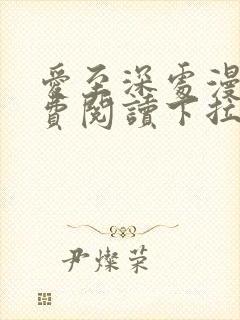 愛至深處漫
費閱讀下拉
尹燦荣